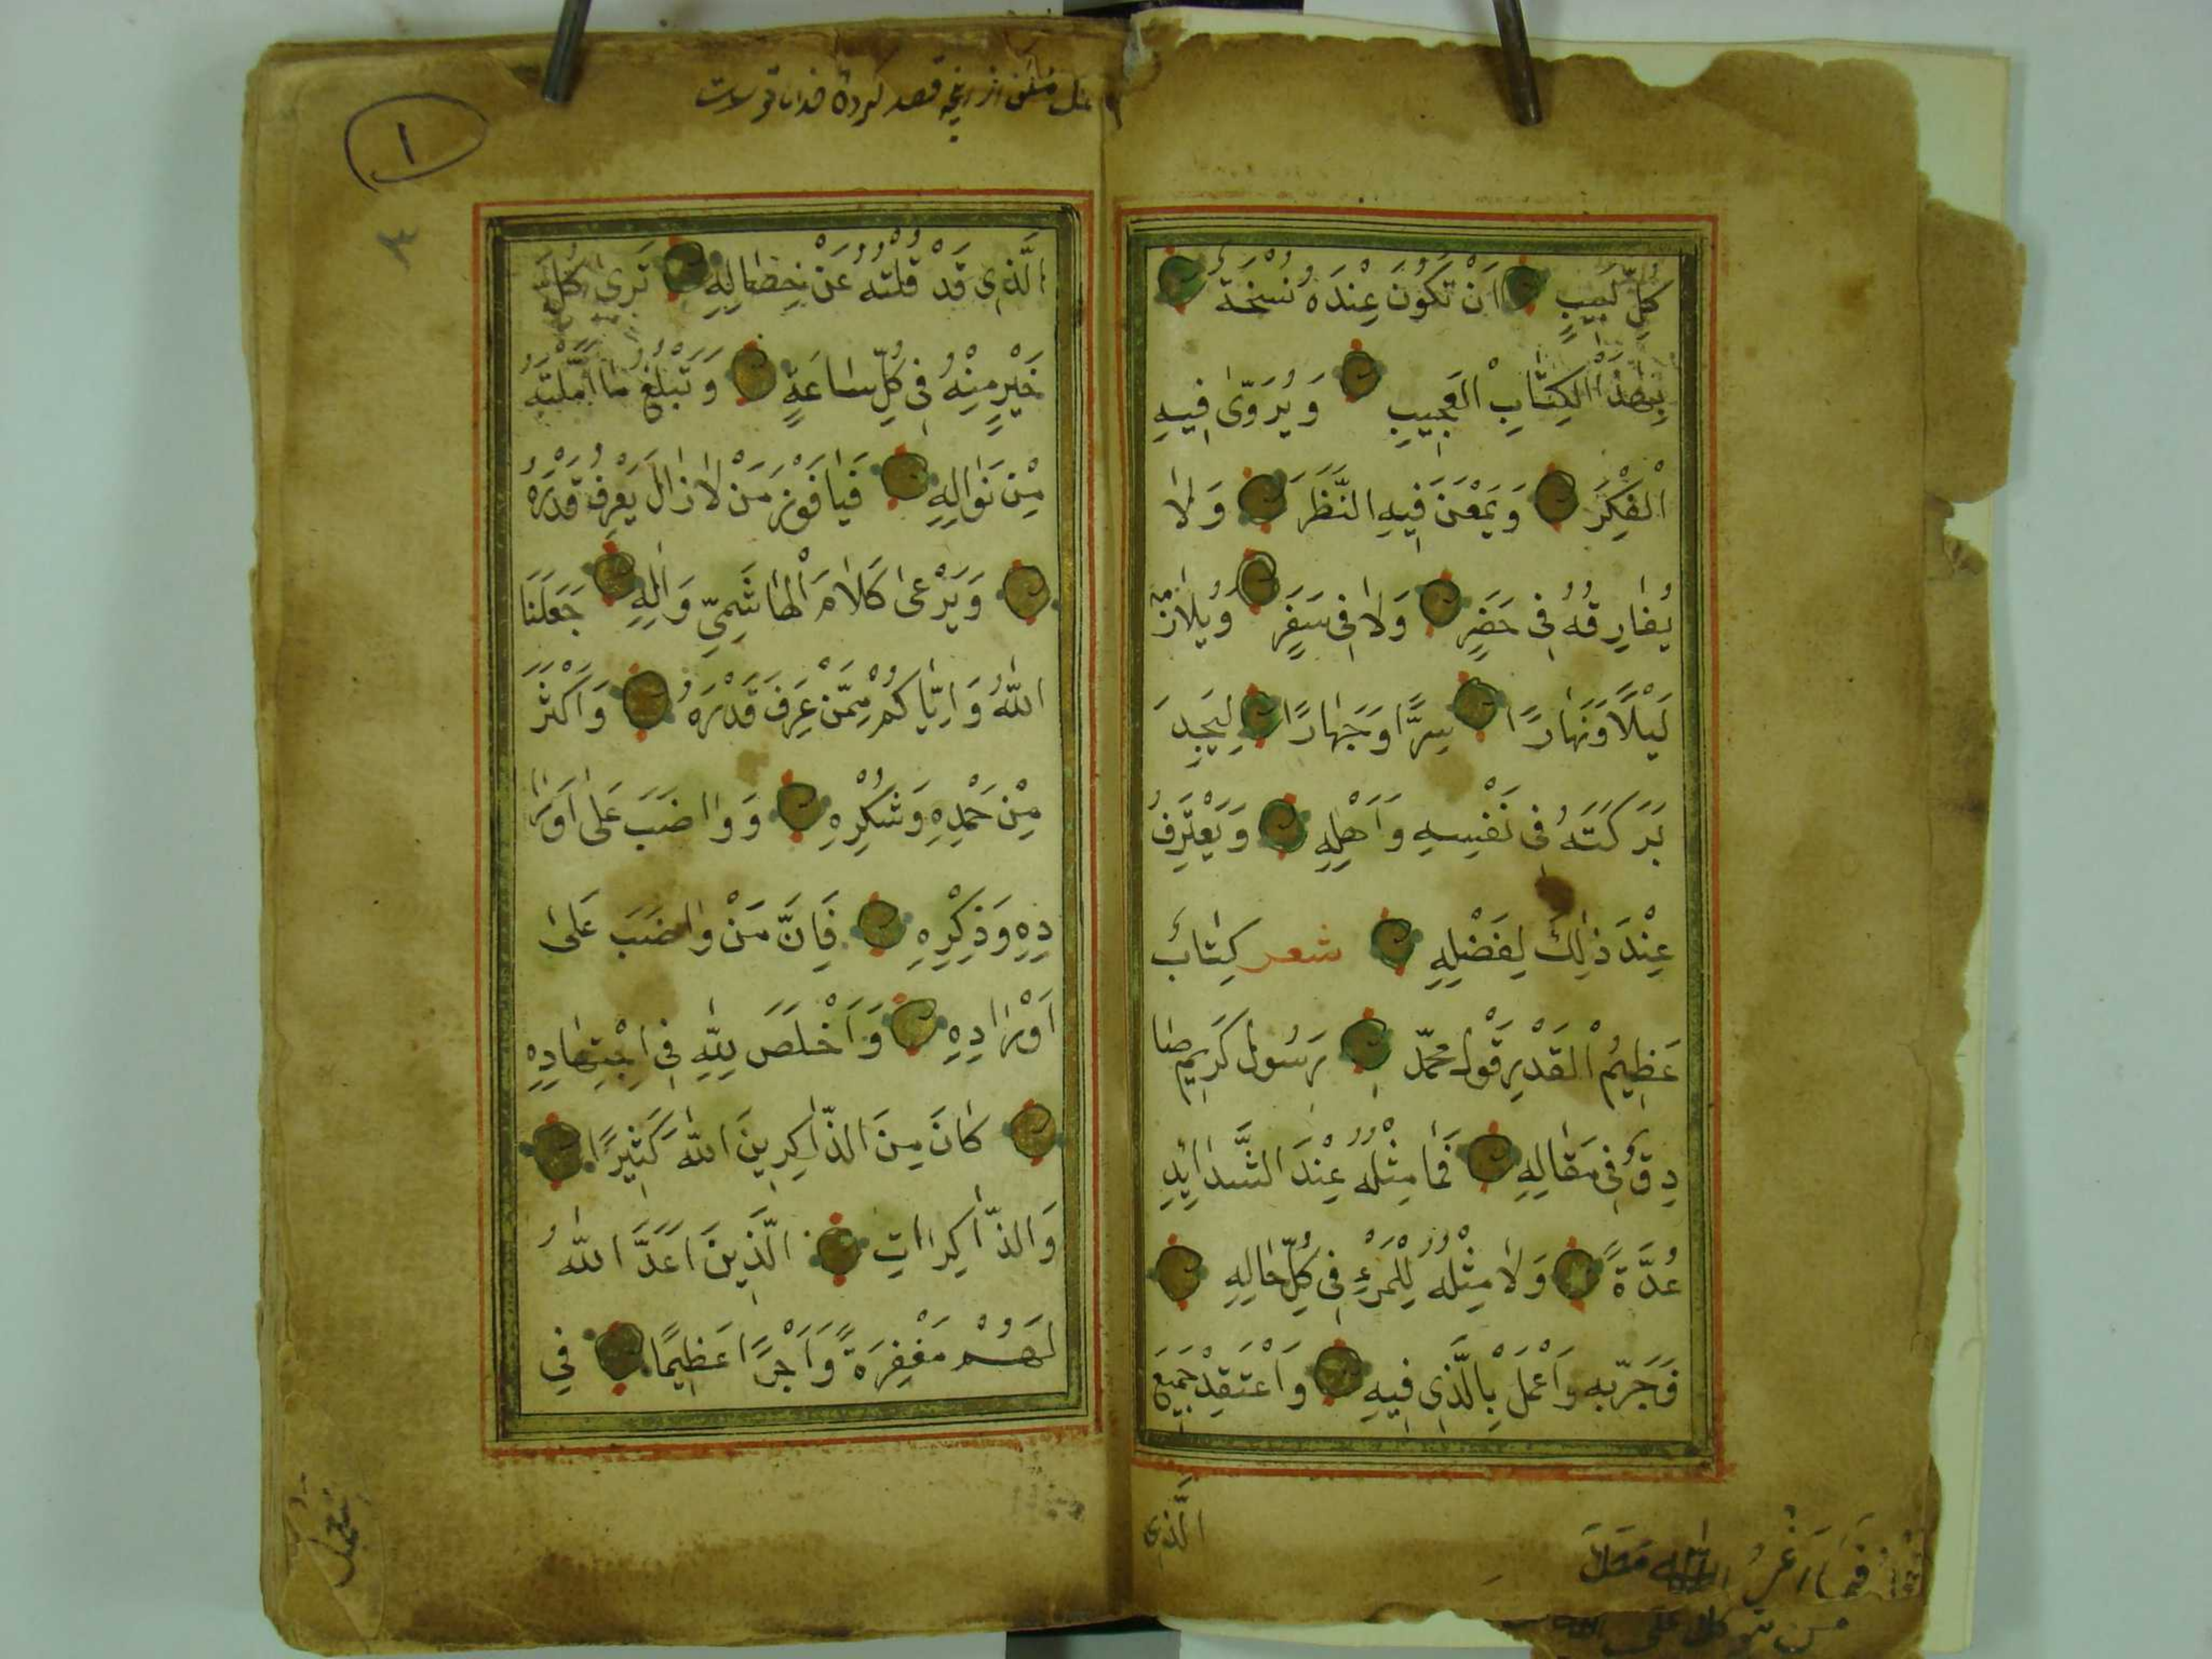 كُلِّ لَبِيبٍ اَنْ تَكُونَ عِنْدَهُ نُسْخَةُ
بِهٰذَا الْكِتَابِ الْعَجِيبِ وَيُرَوّىٰ فِيهِ
الْفِكْرَ وَيَمْعَنَ فِيهِ النَّظَرَ وَلَا
يُفَارِقُهُ فِى حَضَرٍ وَلَا فِى سَفَرٍ وَيُلَازِمُهُ
لَيْلًا وَنَهَارًا سِرًّا وَجَهَارًا لِيَجِدَ
بَرَكَتَهُ فِى نَفْسِهِ وَاَهْلِهِ وَيَعْتَرِفُ
عِنْدَ ذٰلِكَ لِفَضْلِهِ شعر كِتَابٌ
عَظِيمُ الْقَدْرِ قَوْلُ مُحَمَّدٍ رَسُولٍ كَرِيمٍ صَا
دِقٍ فِى مَقَالِهِ فَمَا مِثْلُهُ عِنْدَ الشَّدَائِدِ
عُدَّةً وَلَا مِثْلُهُ لِلْمَرْءِ فِى كُلِّ حَالِهِ
فَجَرِّبْهُ وَاعْمَلْ بِالَّذِى فِيهِ وَاعْتَقِدْ جَمِيعَ
الَّذِى
فَمَا اَغْرُ
من توكل على الله
الَّذِى قَدْ قُلْتُهُ عَنْ خِصَالِهِ تَرىٰ كُلَّ
خَيْرٍ مِنْهُ فِى كُلِّ سَاعَةٍ وَتَبْلُغُ مَا اَمَّلْتَهُ
مِنْ نَوَالِهِ فَيَا فَوْزَ مَنْ لَا زَالَ يَعْرِفُ قَدْرَهُ
وَيَرْعىٰ كَلَامَ الْهَاشِمِيِّ وَاٰلِهِ جَعَلَنَا
اللّٰهُ وَاِيَّاكُمْ مِمَّنْ عَرَفَ قَدْرَهُ وَاَكْثَرَ
مِنْ حَمْدِهِ وَشُكْرِهِ وَوَاضَبَ عَلىٰ اَوْرَا
دِهِ وَذِكْرِهِ فَاِنَّ مَنْ وَاضَبَ عَلىٰ
اَوْرَادِهِ وَاَخْلَصَ لِلّٰهِ فِى اجْتِهَادِهِ
كَانَ مِنَ الذَّاكِرِينَ اللّٰهَ كَثِيرًا
وَالذَّاكِرَاتِ الَّذِينَ اَعَدَّ اللّٰهُ
لَهُمْ مَغْفِرَةً وَاَجْرًا عَظِيمًا فِي
١